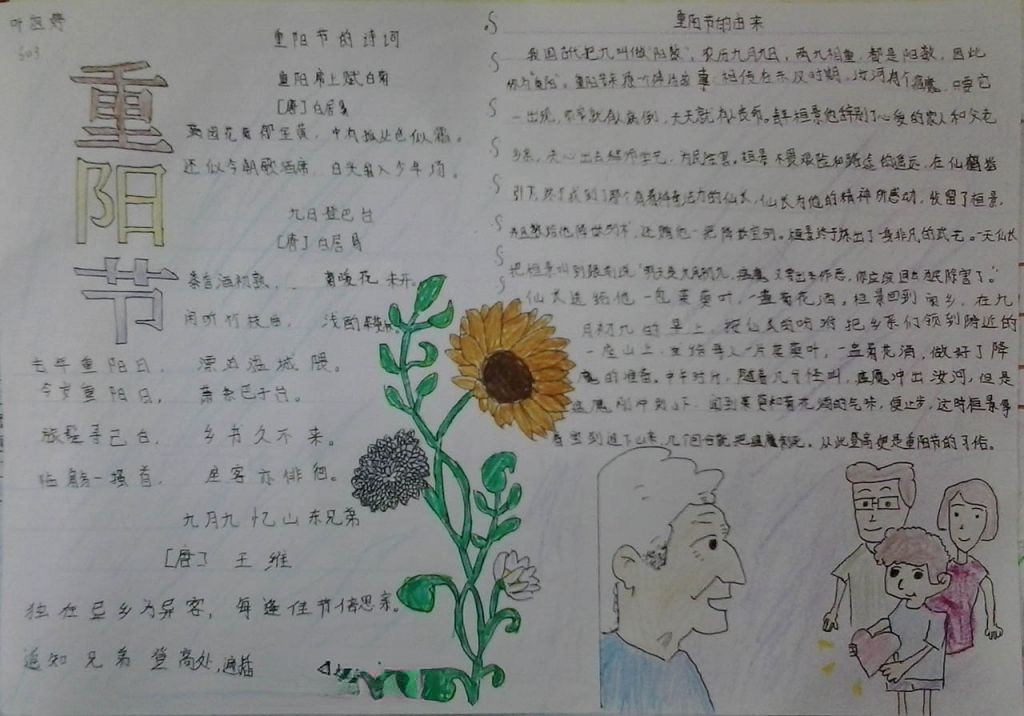 503
重阳节
重阳节的诗词
重阳席上赋白菊
[唐]白居易
满园花菊郁金黄，中有孤丛色似霜。
还似今朝歌酒席，白头翁入少年场。
九日登巴台
[唐]白居易
黍香酒初熟， 菊暖花未开。
闲听竹枝曲， 浅酌
去年重阳日， 漂泊湓城隈。
今岁重阳日， 萧条巴子台。
旅鬓寻已白， 乡书久不来。
临觞一搔首， 座客亦徘徊。
九月九忆山东兄弟
[唐] 王维
独在异乡为异客，每逢佳节倍思亲。
遥知兄弟登高处，遍插
重阳节的由来
我国古代把九叫做"阳数"，农历九月九日，两九相重，都是阳数，因此
称为"重阳"。重阳节来源一个 故事：相传在东汉时期，汝河有个瘟魔，只要它
一出现，家家就有人病倒，天天就有人丧命。 桓景他辞别了心爱的家人和父老
乡亲，决心出去 ，为民除害。桓景不畏艰险和路途的遥远，在仙鹤指
引下，终于找到了那个有着神奇法力的仙长，仙长为他的精神所感动，收留了桓景，
教给他降妖剑术，还赠他一把降妖宝剑。桓景终于练出了一身非凡的武艺。一天仙长
把桓景叫到跟前说"明天是九月初九，瘟魔又要出来作恶，你应该回去为民除害了。"
仙长送给他一包茱萸叶，一盅菊花酒。桓景回到家乡，在九
月初九的早上，按仙长的吩咐把乡亲们领到附近的
一座山上，发给每人一片茱萸叶，一盅菊花酒，做好了降
魔的准备。中午时分，随着几声怪叫，瘟魔冲出汝河，但是
瘟魔刚冲到山下，闻到茱萸和菊花酒的气味，便止步，这时桓景拿
着宝剑追下山来，几个回合就把瘟魔刺死。从此登高便是重阳节的习俗。